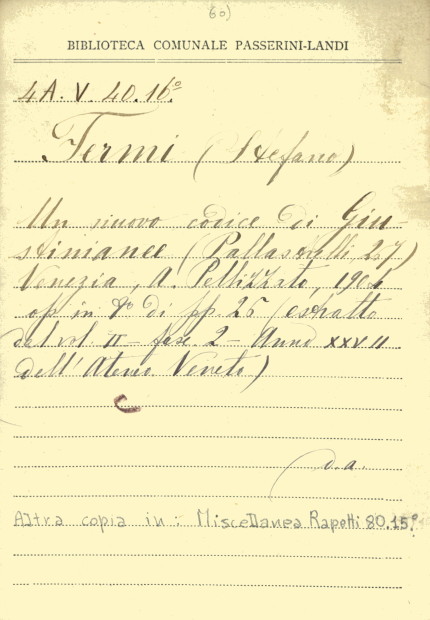 60)
BIBLIOTECA COMUNALE PASSERINI-LANDI
4A. V. 40. 16º
Fermi (Stefano)
Un nuovo codice di Giu-
stinianee (Pallastrelli 27)
Venezia, A. Pellizzato, 1904
op. in 8º di pp. 25 (estratto
dal vol. II - fasc. 2 - Anno XXVII
dell'Ateneo Veneto)
d.a.
Altra copia in: Miscellanea Rapetti 80.15º